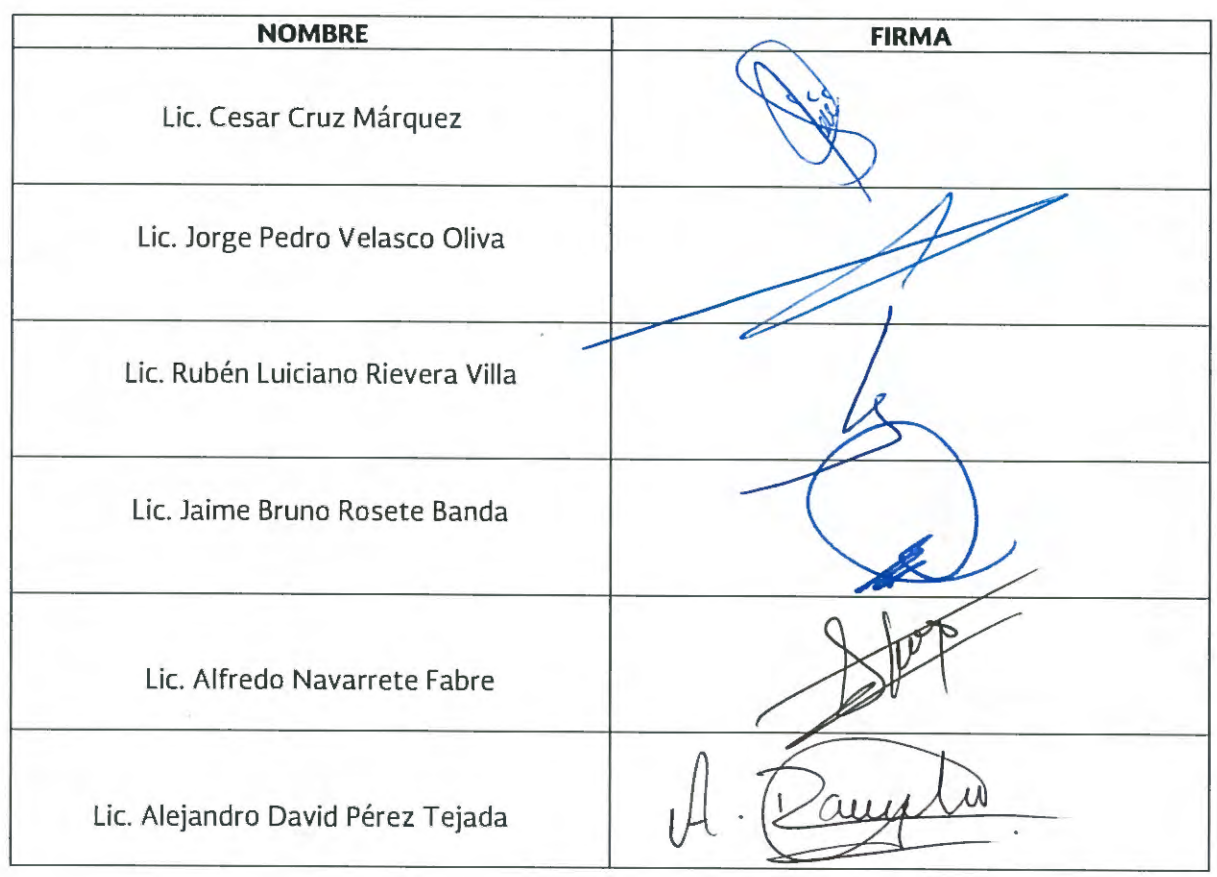 NOMBRE FIRMA
Lic. Cesar Cruz Márquez
Lic. Jorge Pedro Velasco Oliva
Lic. Rubén Luiciano Rievera Villa
Lic. Jaime Bruno Rosete Banda
Lic. Alfredo Navarrete Fabre
Lic. Alejandro David Pérez Tejada A.